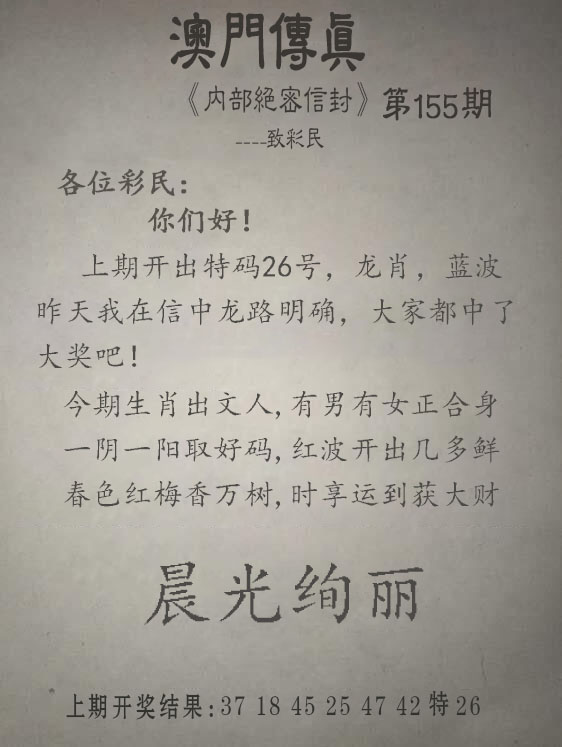 澳門傳眞
《内部絕密信封》第155期
----致彩民
各位彩民：
你们好！
上期开出特码26号，龙肖，蓝波
昨天我在信中龙路明确，大家都中了
大奖吧！
今期生肖出文人,有男有女正合身
一阴一阳取好码,红波开出几多鲜
春色红梅香万树,时享运到获大财
晨光绚丽
上期开奖结果:37 18 45 25 47 42 特 26